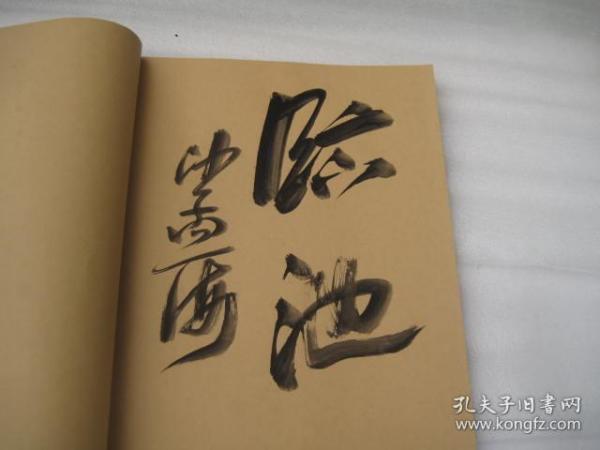 临池
沙孟海
孔夫子旧書网
www.kongfz.com